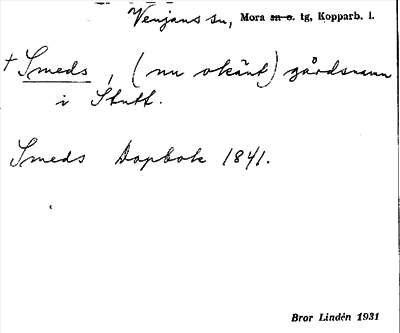 Venjans sn, Mora sn o. tg, Kopparb. l.
+ Smeds, (nu okänt) gårdsnamn
i Stutt.
Smeds Dopbok 1841.
Bror Lindén 1931